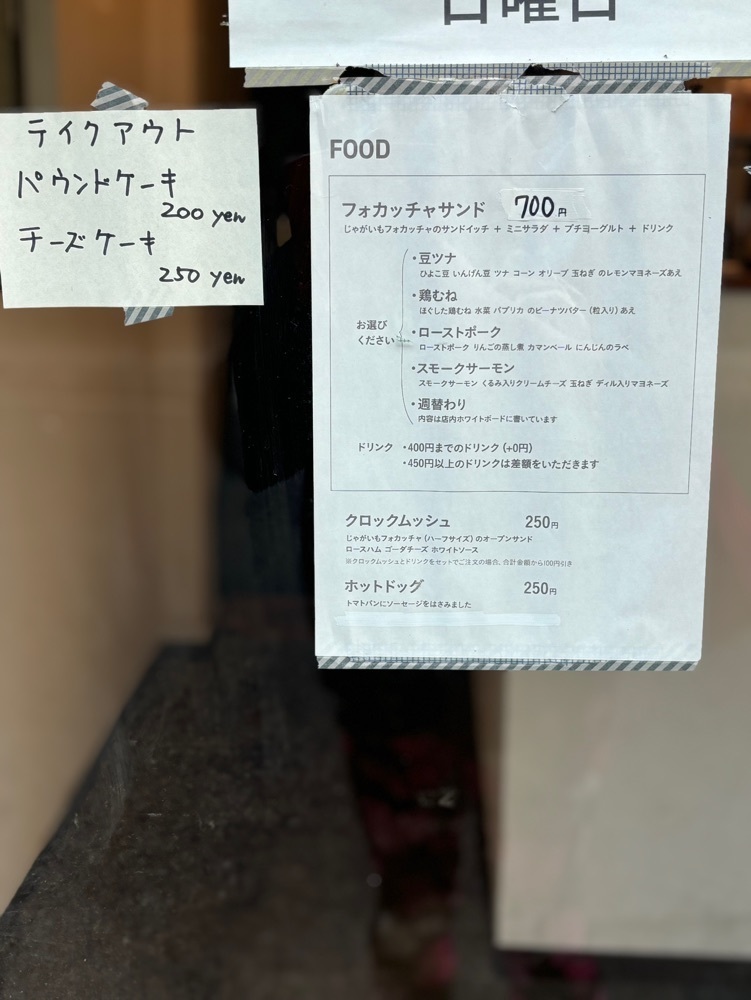 日曜日
テイクアウト
パウンドケーキ
200 yen
チーズケーキ
250 yen
FOOD
フォカッチャサンド 700円
じゃがいもフォカッチャのサンドイッチ + ミニサラダ + プチヨーグルト + ドリンク
お選び
ください
・豆ツナ
ひよこ豆 いんげん豆 ツナ コーン オリーブ 玉ねぎ のレモンマヨネーズあえ
・鶏むね
ほぐした鶏むね 水菜 パプリカ のピーナツバター (粒入り) あえ
・ローストポーク
ローストポーク りんごの蒸し煮 カマンベール にんじんのラペ
・スモークサーモン
スモークサーモン くるみ入りクリームチーズ 玉ねぎ ディル入りマヨネーズ
・週替わり
内容は店内ホワイトボードに書いています
ドリンク ・400円までのドリンク (+0円)
・450円以上のドリンクは差額をいただきます
クロックムッシュ 250円
じゃがいもフォカッチャ (ハーフサイズ) のオープンサンド
ロースハム ゴーダチーズ ホワイトソース
※クロックムッシュとドリンクをセットでご注文の場合、合計金額から100円引き
ホットドッグ 250円
トマトパンにソーセージをはさみました